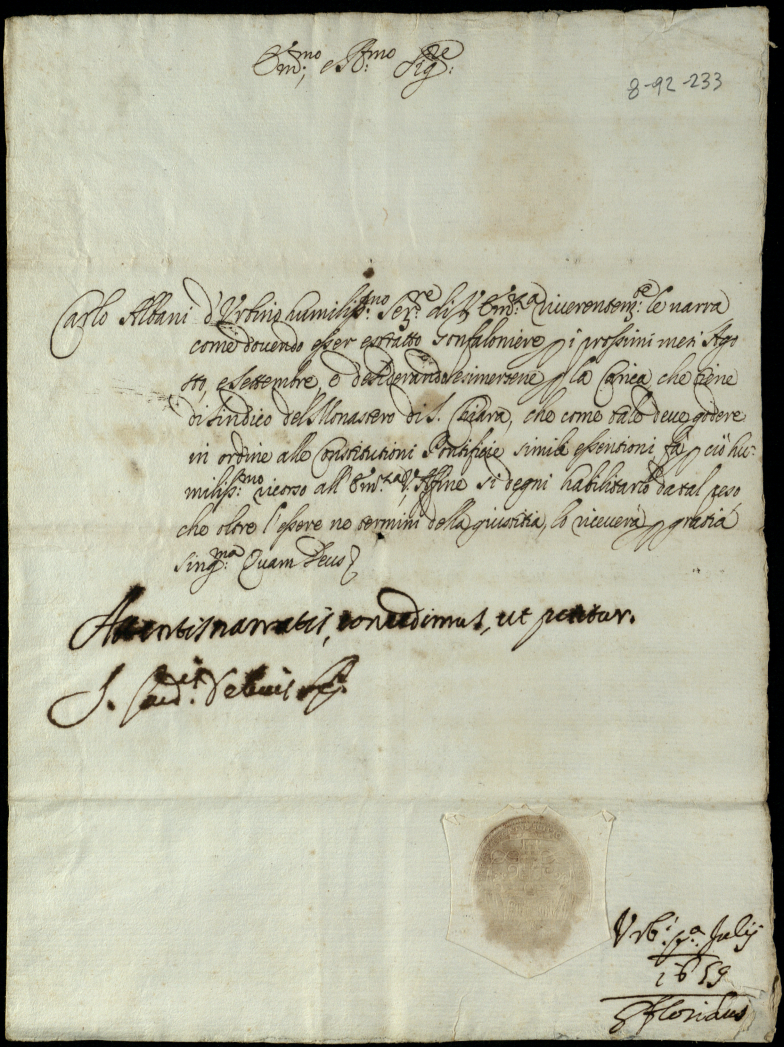 Em.mo e R.mo Sig.re
8-92-233
Carlo Albani d'Urbino humiliss.mo Ser.re di V. Em.za riverentem.te le narra
come dovendo esser estratto Gonfaloniere p i prossimi mesi Ago
sto, e Settembre, e desiderando esimersene p la Carica, che tiene
di Sindico del Monastero di S. Chiara, che come tale deve godere
in ordine alle Constitutioni Pontificie simile essentioni, fà p ciò hu-
miliss.mo ricorso all' Em.za V. Affine si degni habilitarlo da tal peso
che oltre l'essere ne termini della giustitia, lo riceverà p gratia
sing.ma Quam Deus
Attentis narratis, concedimus, ut petitur.
Urb.i p.a Julij
1659
Floridus